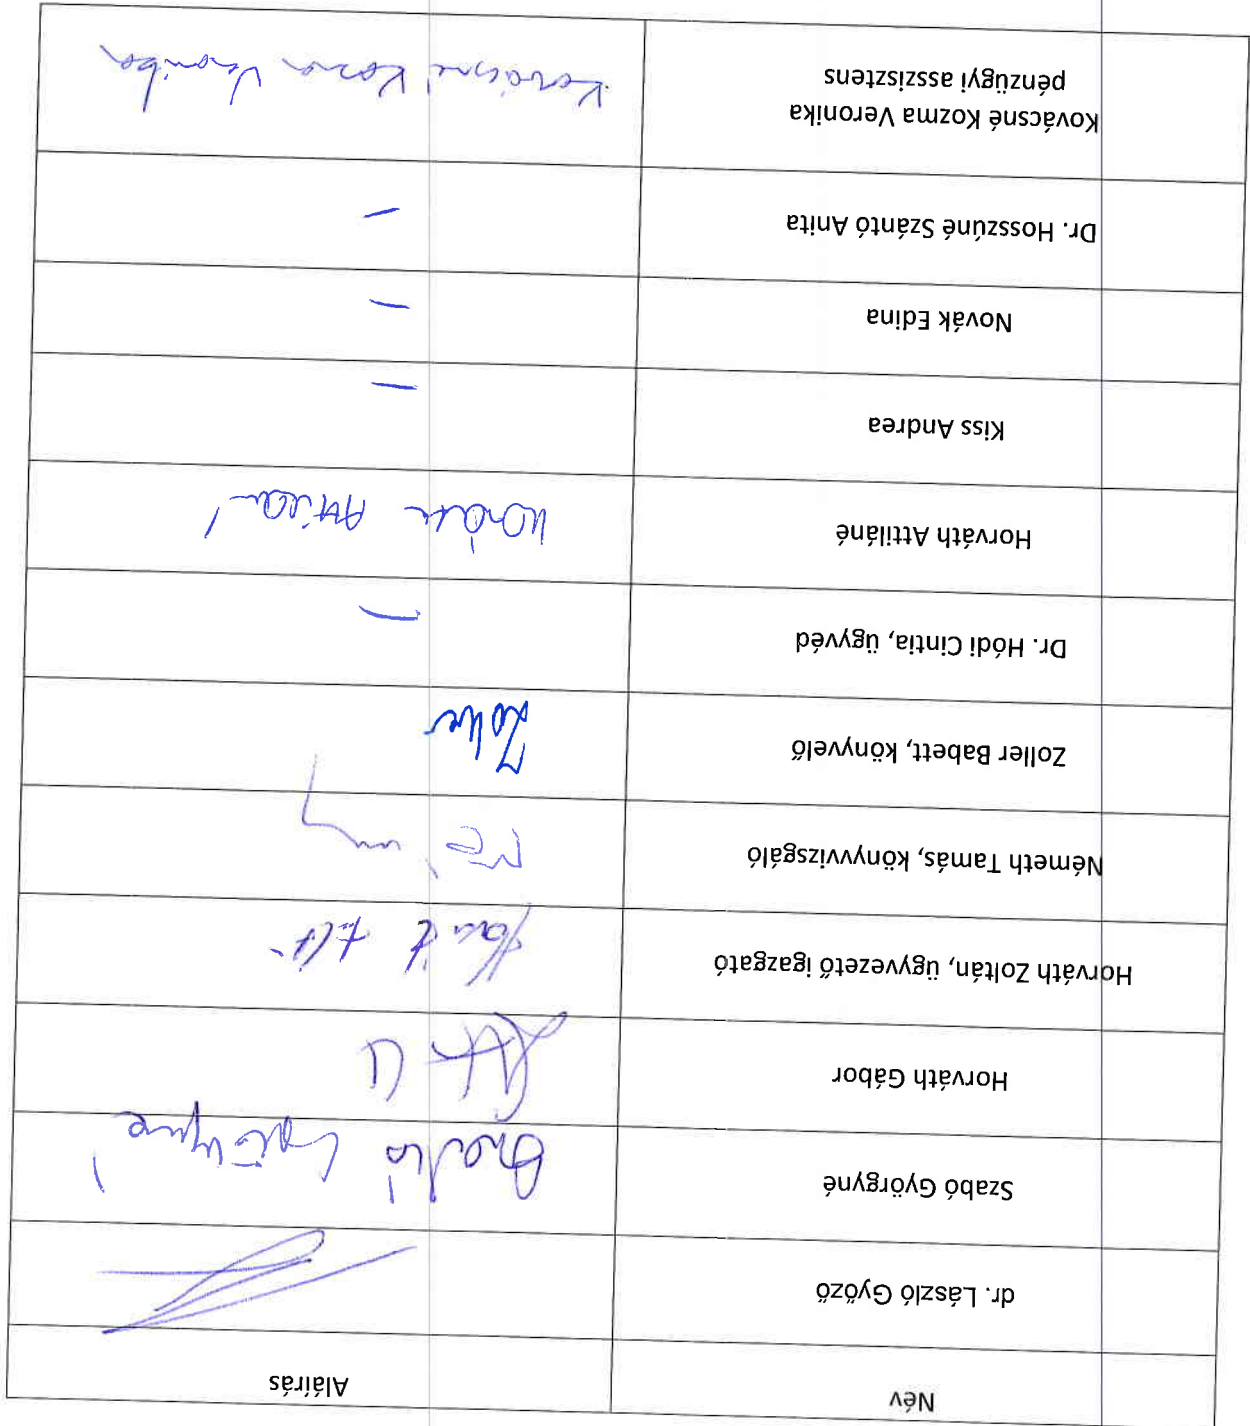 Név Aláírás
dr. László Győző
Szabó Györgyné Szabó Györgyné
Horváth Gábor
Horváth Zoltán, ügyvezető igazgató
Németh Tamás, könyvvizsgáló
Zoller Babett, könyvelő Zoller
Dr. Hódi Cintia, ügyvéd –
Horváth Attiláné Horváth Attiláné
Kiss Andrea –
Novák Edina –
Dr. Hosszúné Szántó Anita –
Kovácsné Kozma Veronika Kovácsné Kozma Veronika
pénzügyi asszisztens